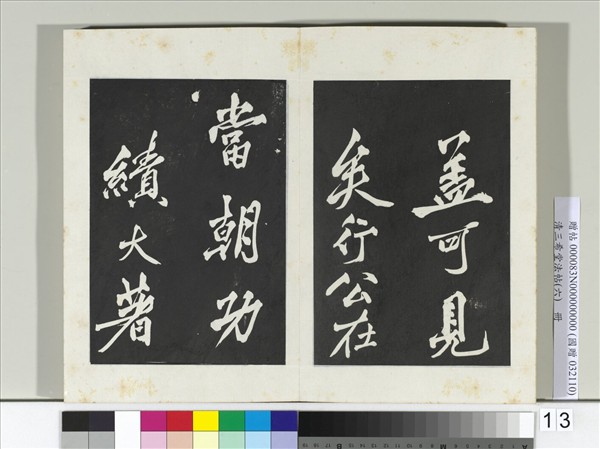 蓋可見
矣行公在
當朝功
績大著
贈帖 000083N000000000 (國贈 032110)
清三希堂法帖(六) 冊
13